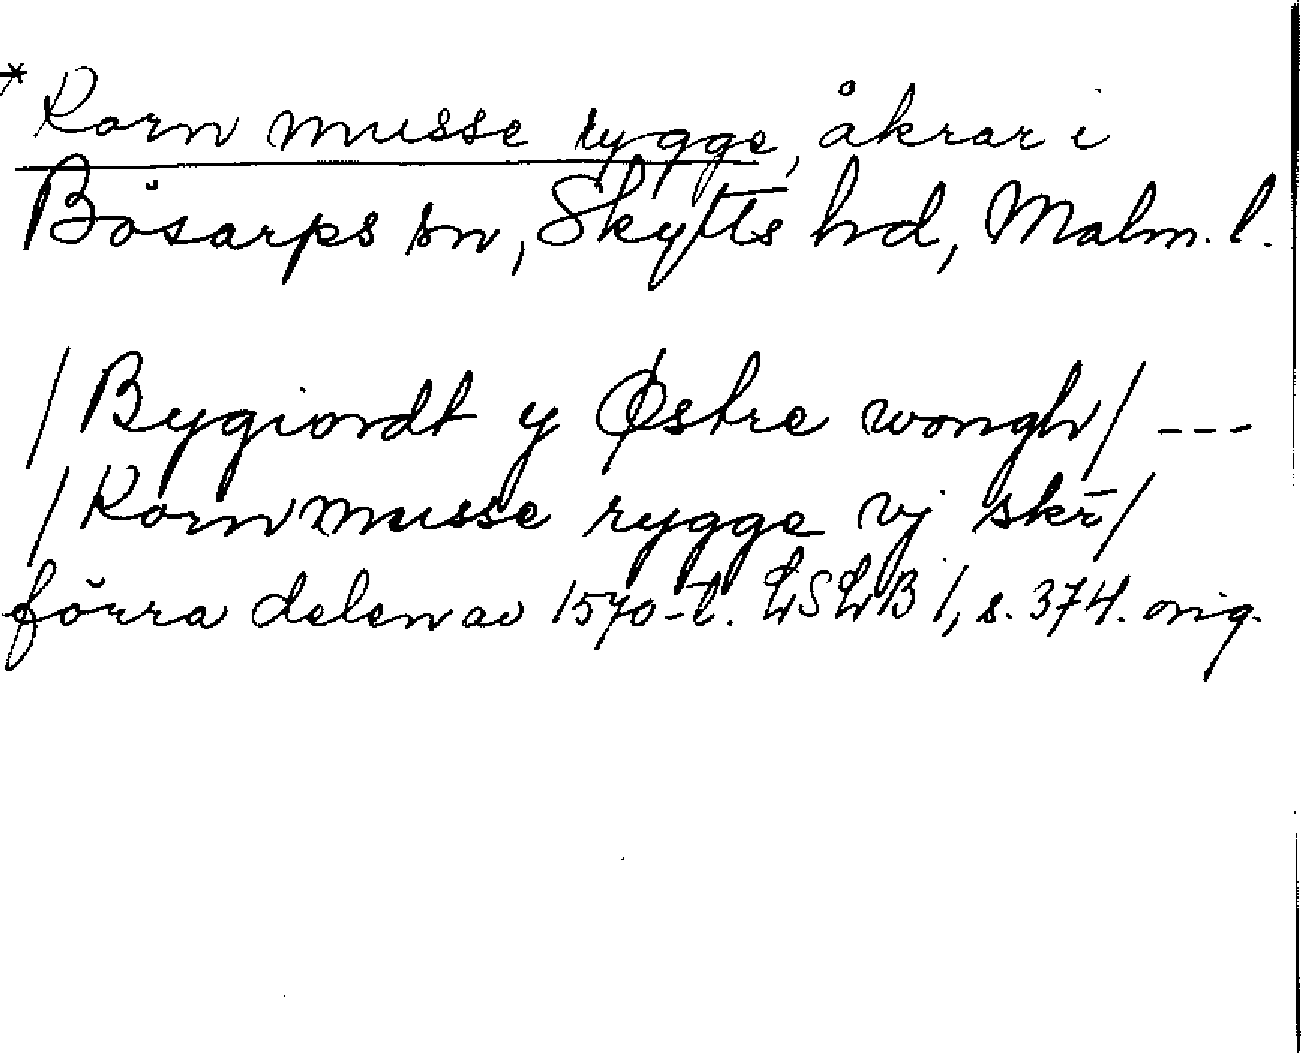 * Korn musse rygge, åkrar i
Bösarps sn, Skytts hd, Malm. l.
/Bygiordt y Østre wongh/ ---
/Korn musse rygge vj skr̄/
förra delen av 1570-t. LSLB 1, s. 374. orig.